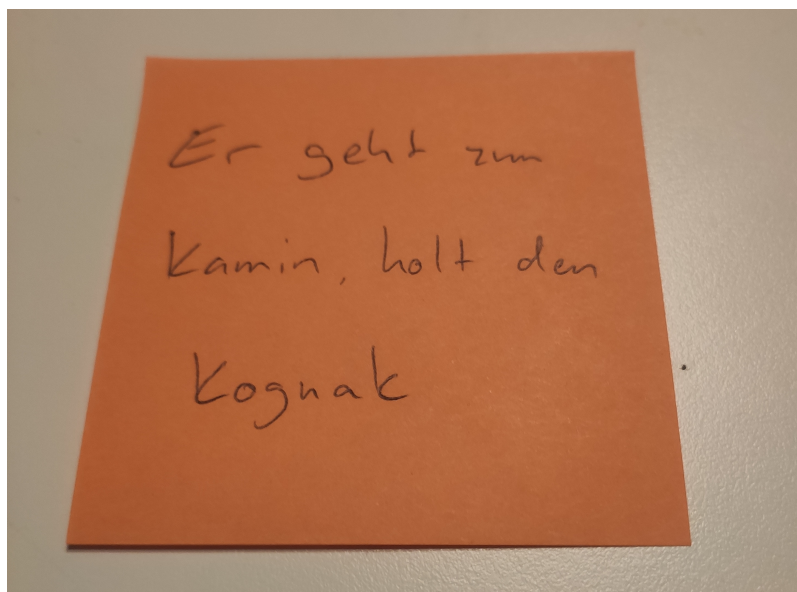 Er geht zum
Kamin, holt den
Kognak